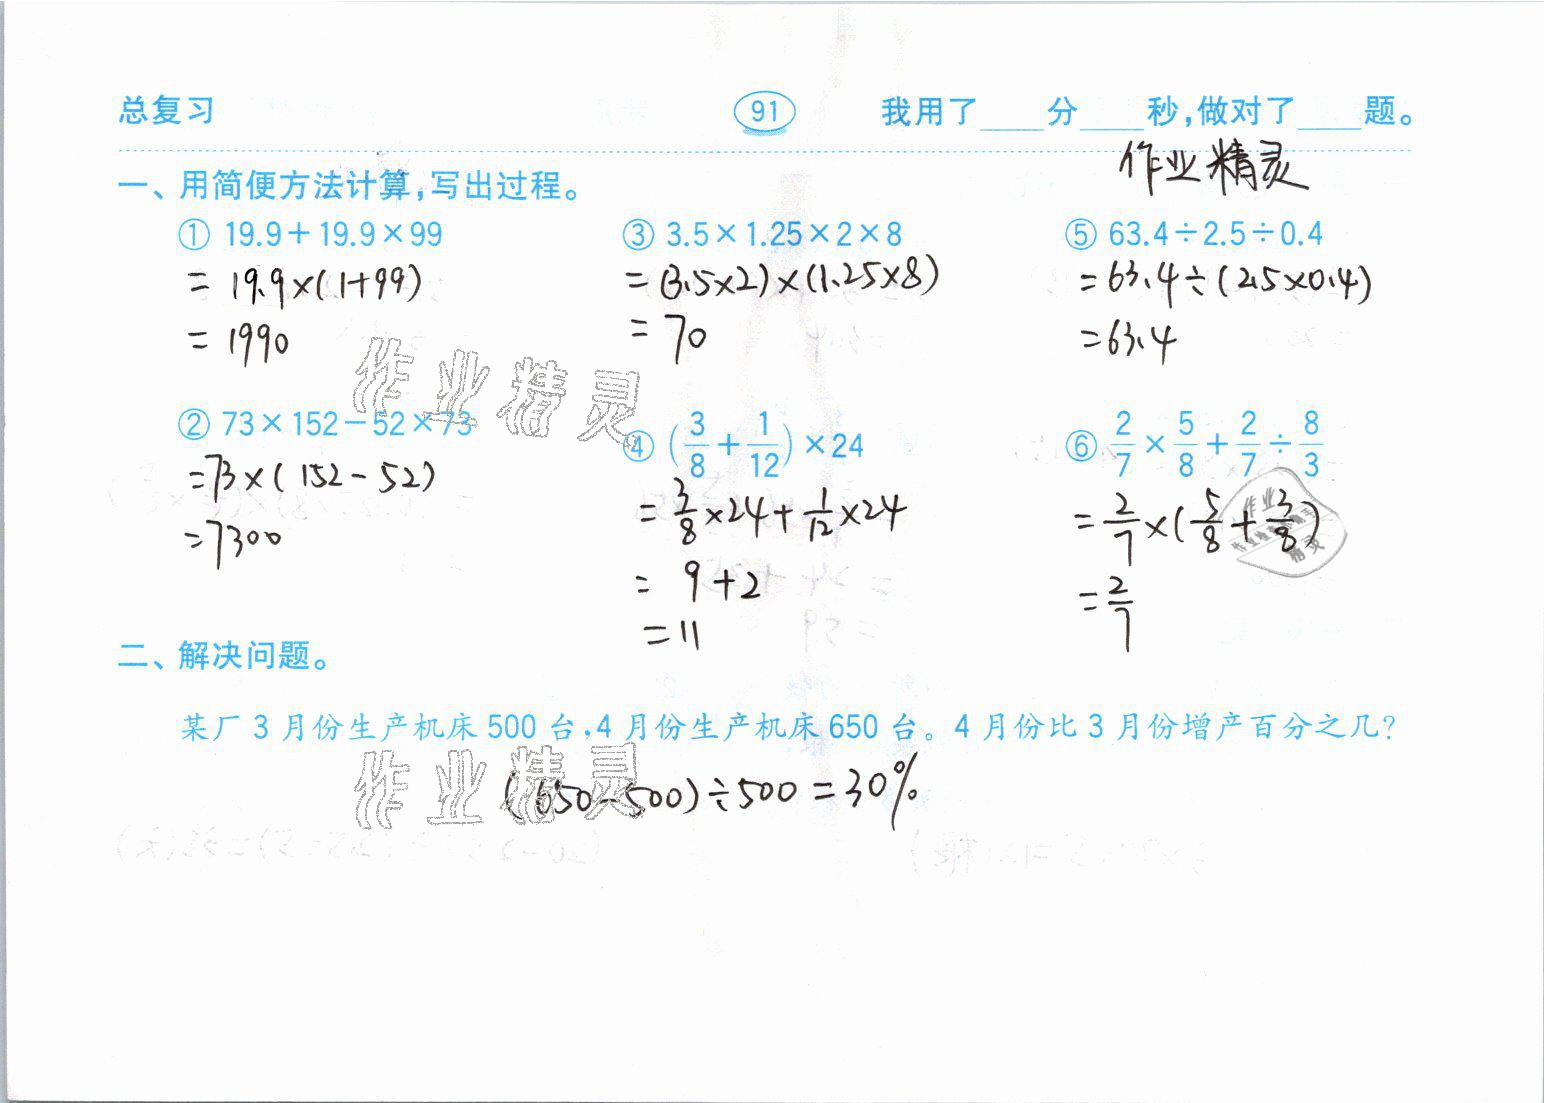 总复习 91 我用了____分____秒,做对了____题。
作业精灵
一、用简便方法计算,写出过程。
① 19.9+19.9×99
= 19.9×(1+99)
= 1990
② 73×152-52×73
=73×(152-52)
=7300
③ 3.5×1.25×2×8
=(3.5×2)×(1.25×8)
= 70
④ (3/8+1/12)×24
= 3/8×24+1/12×24
= 9+2
=11
⑤ 63.4÷2.5÷0.4
=63.4÷(2.5×0.4)
=63.4
⑥ 2/7×5/8+2/7÷8/3
=2/7×(5/8+3/8)
=2/7
作业精灵
作业
精灵
二、解决问题。
某厂3月份生产机床500台,4月份生产机床650台。4月份比3月份增产百分之几?
(650-500)÷500=30%
作业精灵